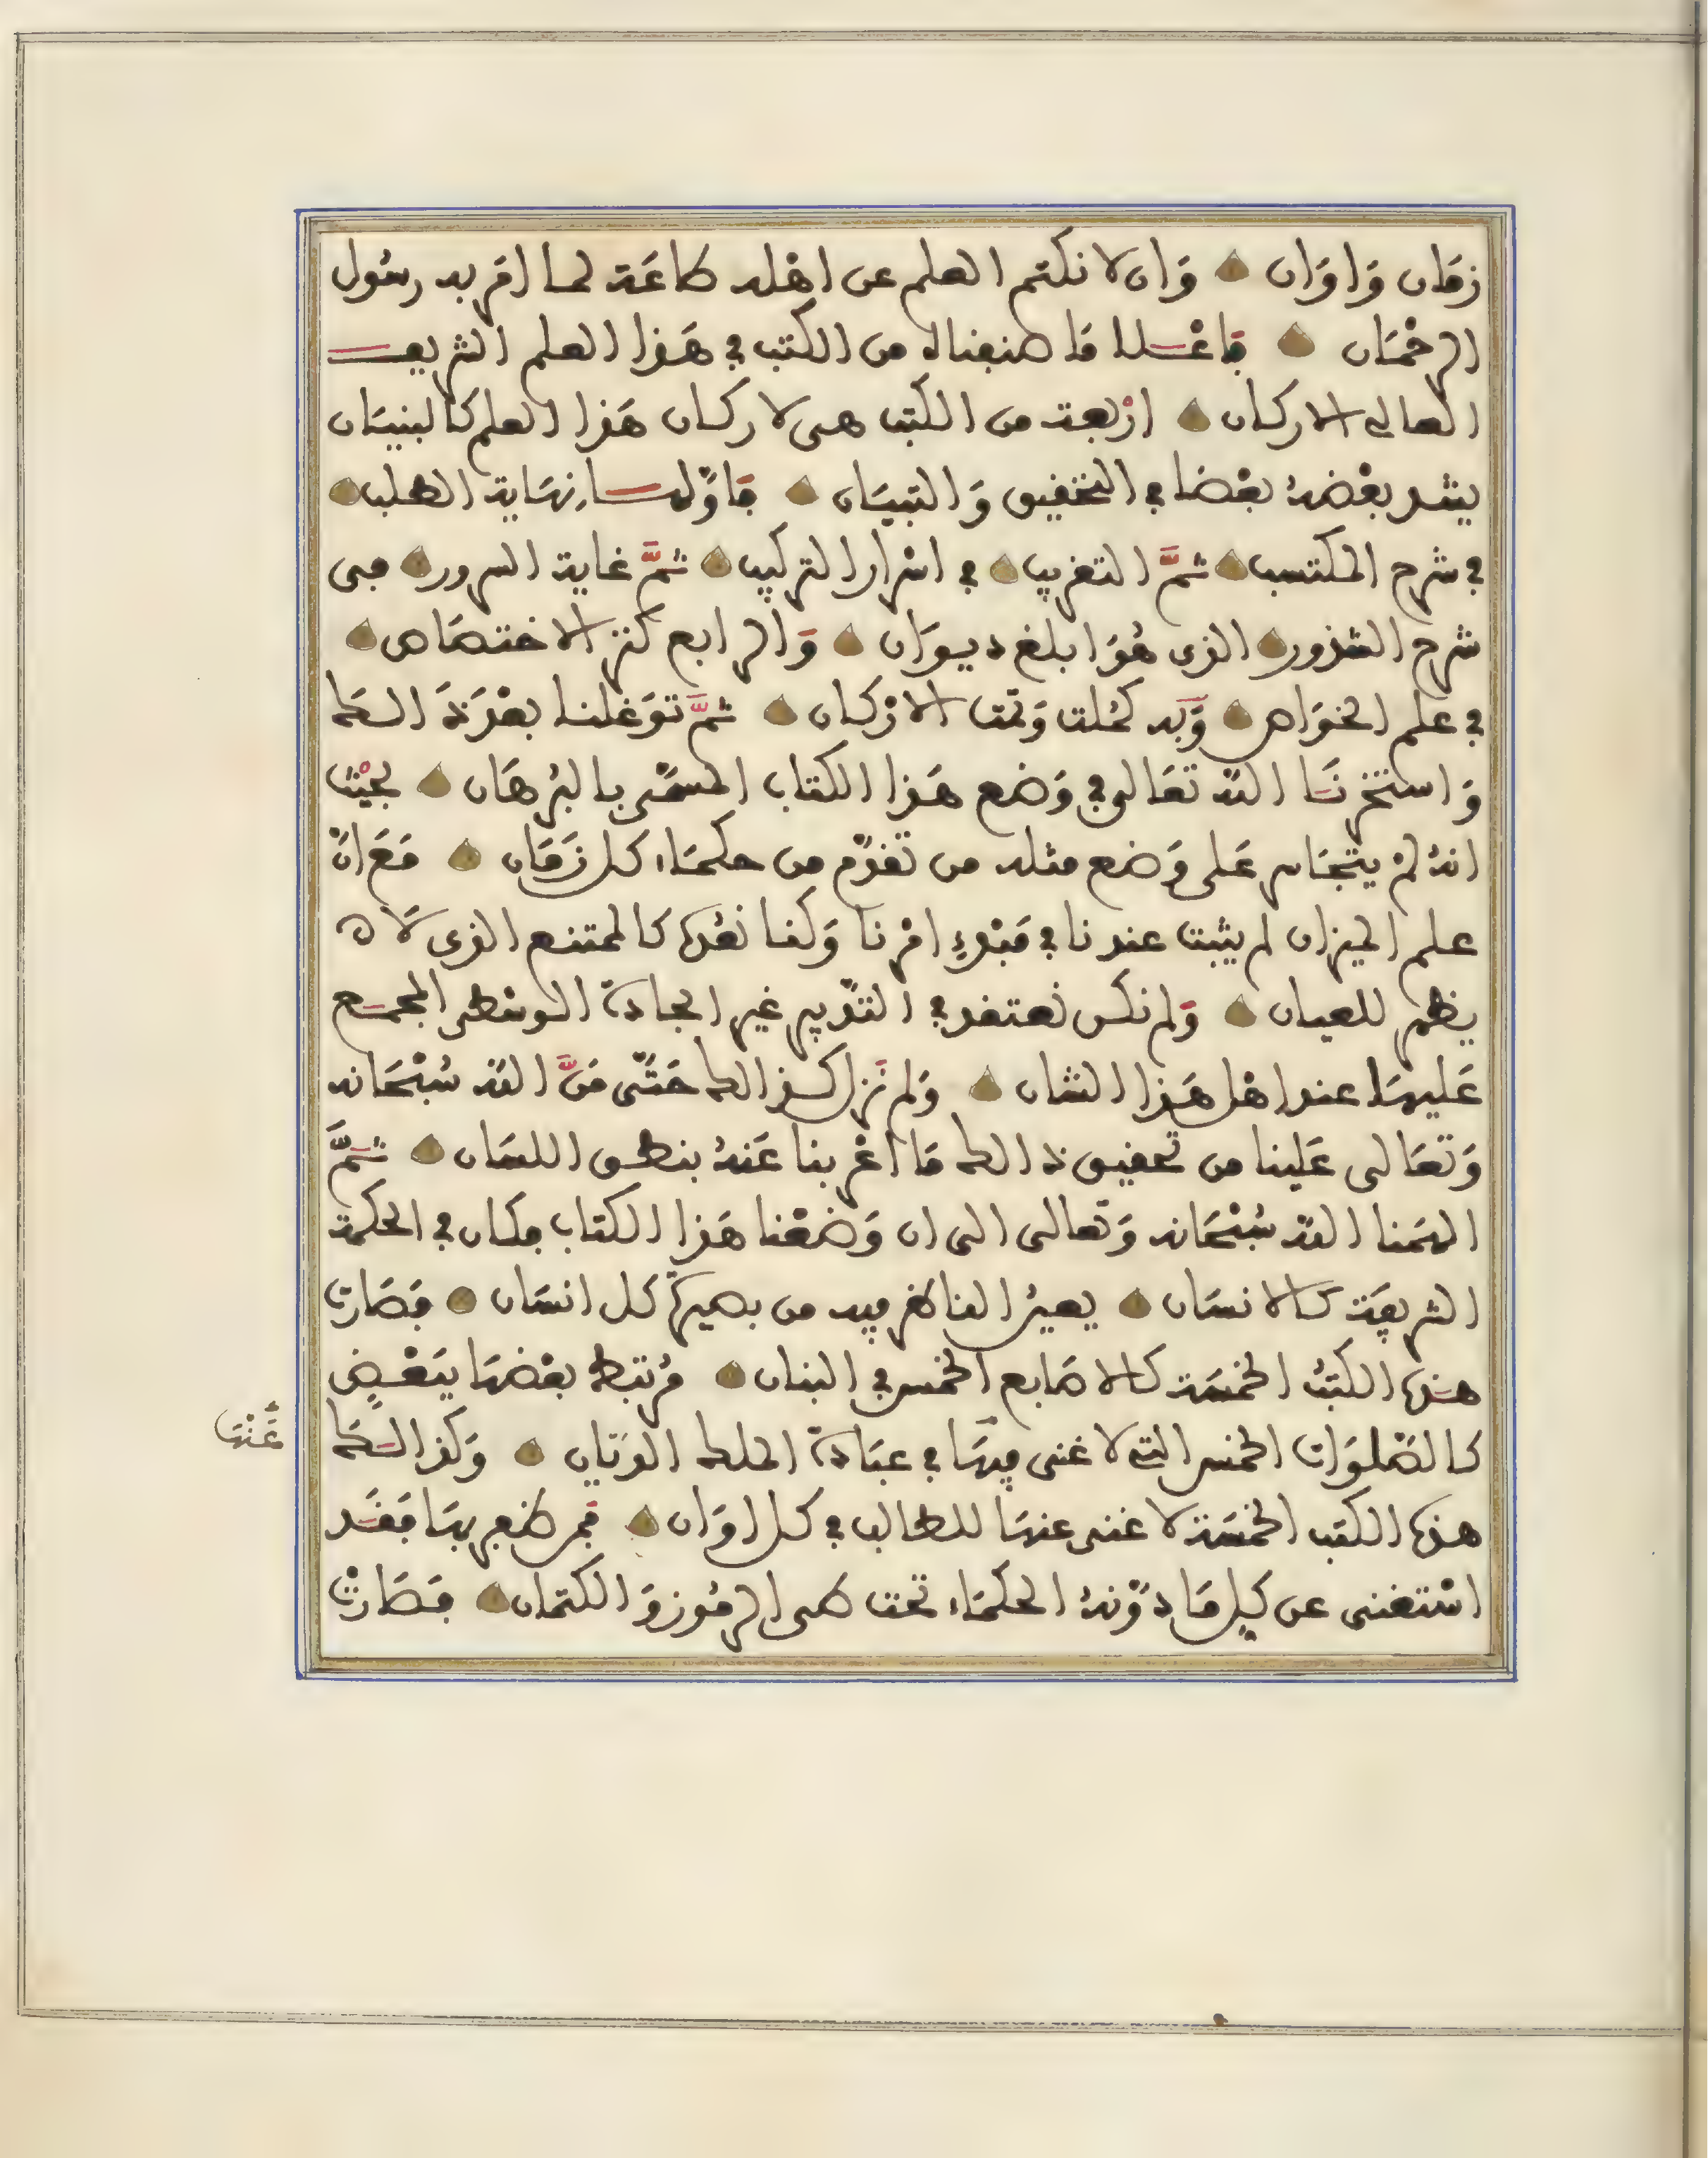 زمان واوان وان لا نكتم العلم عن اهله طاعة لما امر به رسول
الرحمان فاعلا ما صنفناه من الكتب في هذا العلم الشريف
العالي الاركان اربعة من الكتب هى لاركان هذا العلم كالبنيان
يشد بعضه بعضا في التحقيق والتبيان فاولها نهاية الطلب
في شرح المكتسب ثم التقريب في اسرار التركيب ثم غاية السرور في
شرح الشذور الذى هو ابلغ ديوان والرابع كنز الاختصاص
في علم الخواص وبه كملت وتمت الاركان ثم توغلنا بعد ذالك
واستخرنا الله تعالى في وضع هذا الكتاب المسمى بالبرهان بحيث
انه لم يتجاسر على وضع مثله من تقدم من حكماء كل زمان مع ان
علم الميزان لم يثبت عندنا في مبدء امرنا وكنا نعده كالممتنع الذى لا
يظهر للعيان ولم نكن نعتقد في التدبير غير الجادة الوسطى المجمع
عليها عند اهل هذا الشان ولم نزل كذالك حتى من الله سبحانه
وتعالى علينا من تحقيق ذالك ما اعربنا عنه بنطق اللسان ثم
الهمنا الله سبحانه وتعالى الى ان وضعنا هذا الكتاب فكان في الحكمة
الشريفة كالانسان يعيش الناظر فيه من بصيرة كل انسان فصارت
هذه الكتب الخمسة كالاصابع الخمس في البنان مرتبط بعضها ببعض
كالصلوات الخمس التي لا غنى فيها في عبادة الملك الديان وكذالك
عنها
هذه الكتب الخمسة لا غنى عنها للطالب في كل اوان فمن ظفر بها فقد
استغنى عن كل ما دونه الحكماء تحت طى الرموز والكتمان فصارت